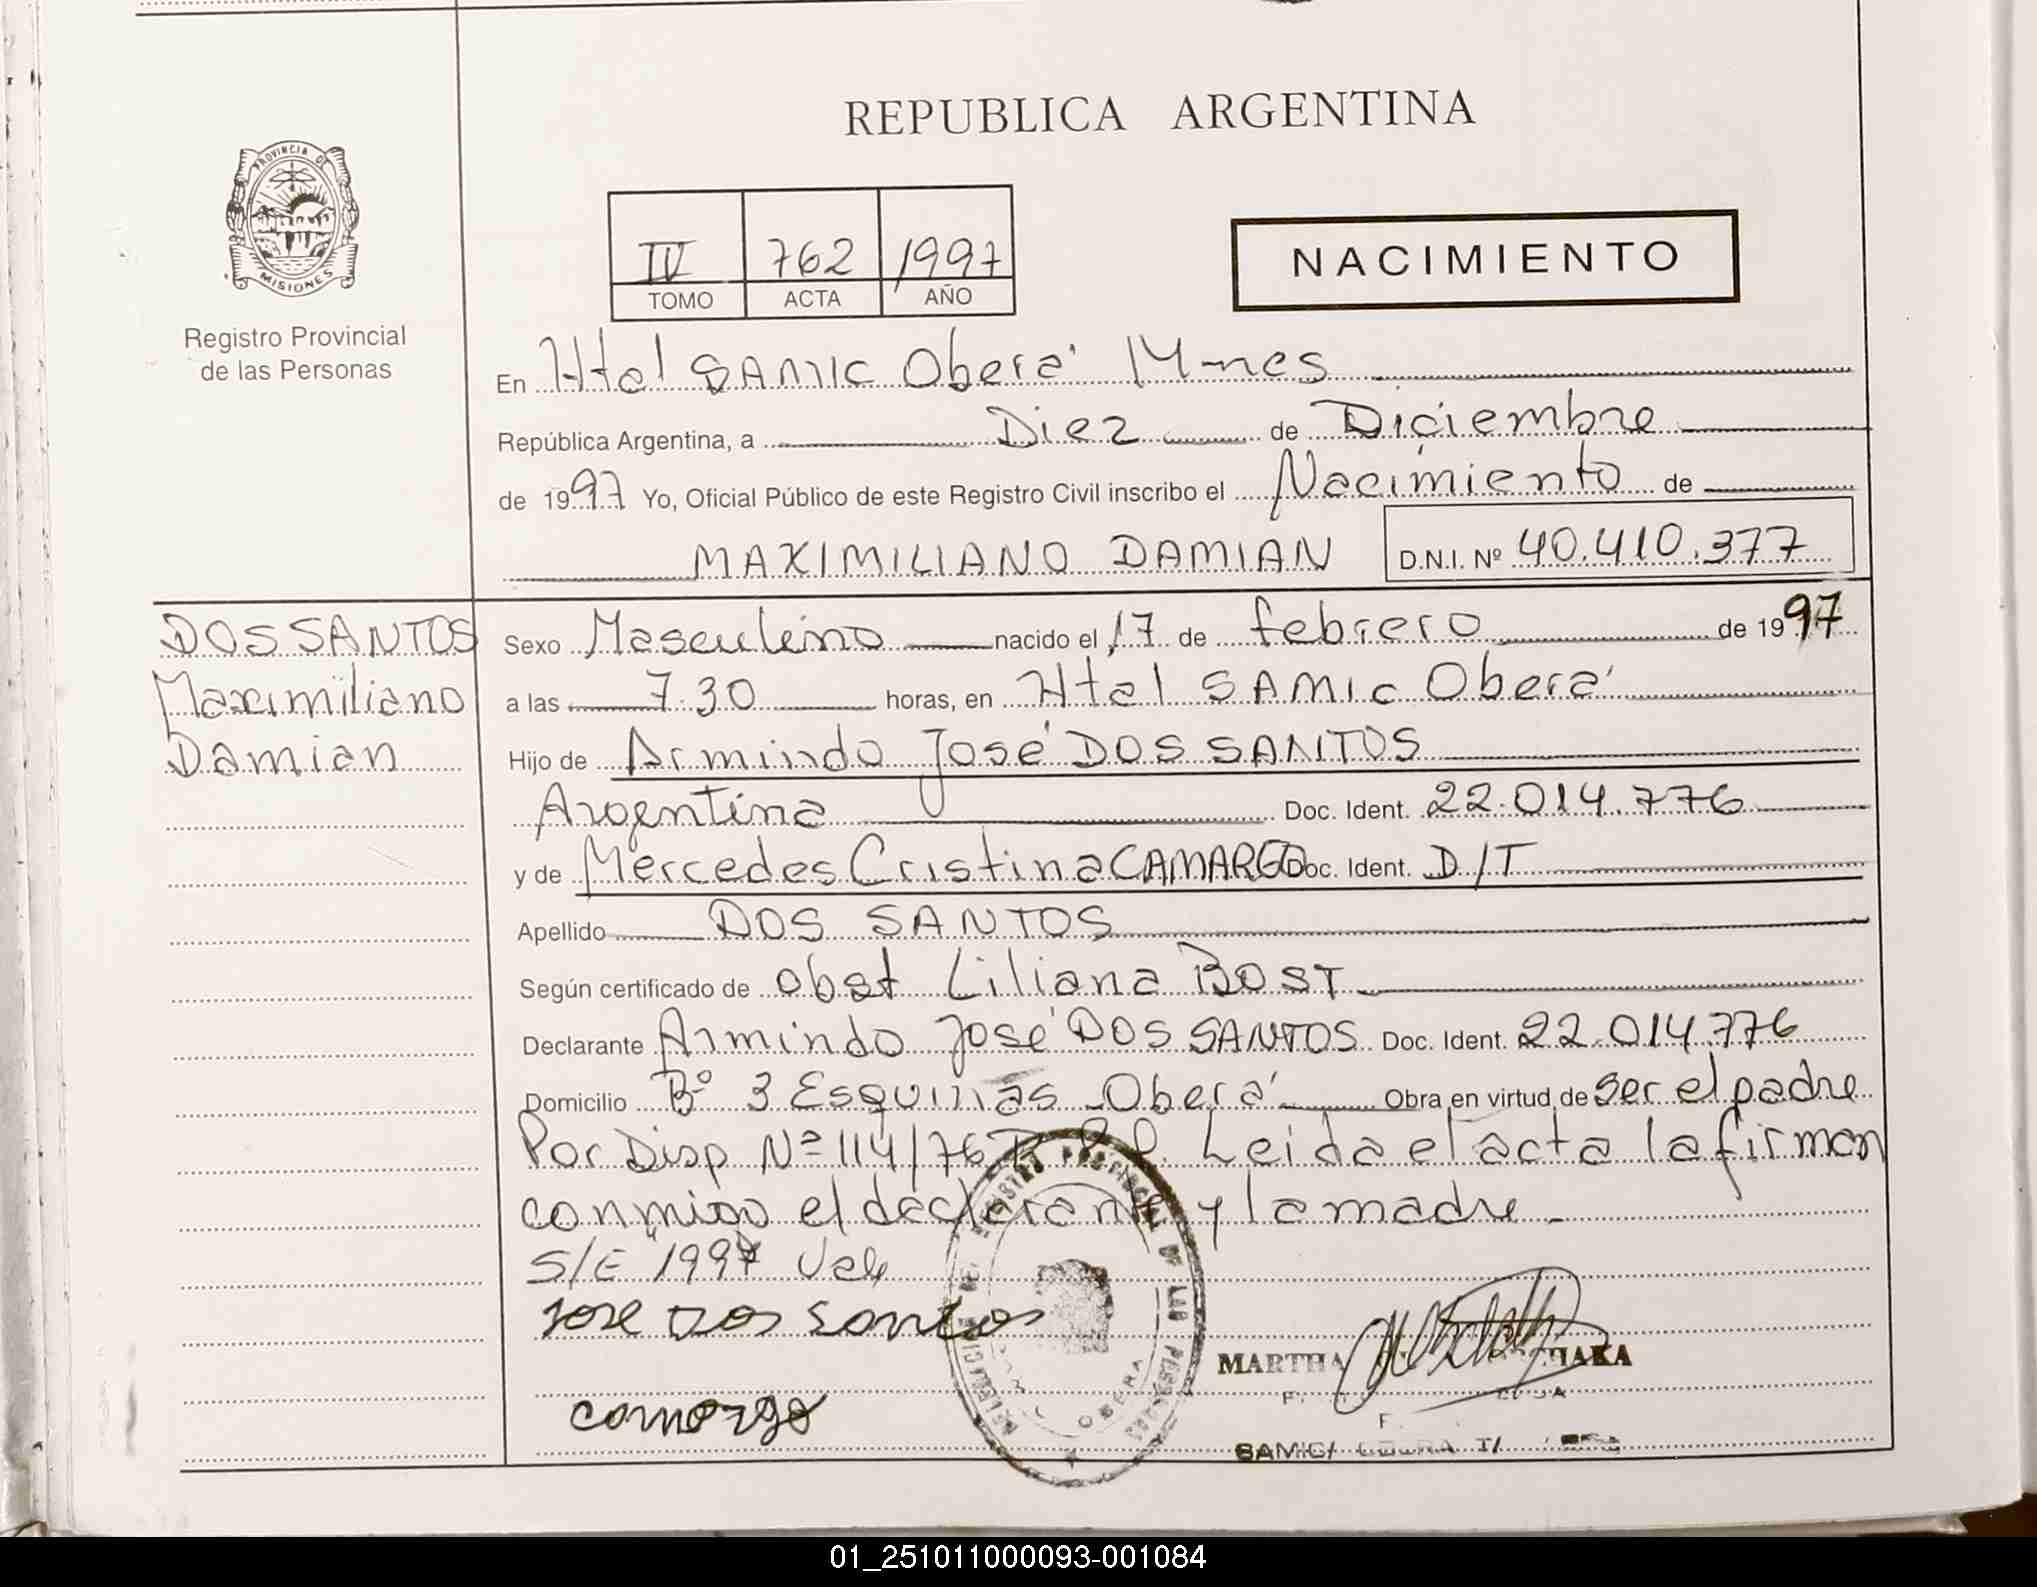 REPUBLICA ARGENTINA
PROVINCIA DE
MISIONES
Registro Provincial
de las Personas
IV 762 1997
TOMO ACTA AÑO
NACIMIENTO
En Htal SAMIC Oberá M-nes
República Argentina, a Diez de Diciembre
de 1997 Yo, Oficial Público de este Registro Civil inscribo el Nacimiento de
MAXIMILIANO DAMIAN D.N.I. Nº 40.410.377
DOS SANTOS
Maximiliano
Damian
Sexo Masculino nacido el 17 de febrero de 1997
a las 7.30 horas, en Htal SAMIC Oberá
Hijo de Armindo José DOS SANTOS
Argentina Doc. Ident. 22.014.776
y de Mercedes Cristina CAMARGO Doc. Ident. D/T
Apellido DOS SANTOS
Según certificado de obst Liliana BOST
Declarante Armindo José DOS SANTOS Doc. Ident. 22.014.776
Domicilio Bº 3 Esquinas Oberá Obra en virtud de ser el padre
Por Disp Nº 114/76 Leida el acta la firman
conmigo el declarante y la madre
S/E "1997 Vale
Jose Dos Santos
MARTHA
camargo
OBERA
SAMIC/
01_251011000093-001084